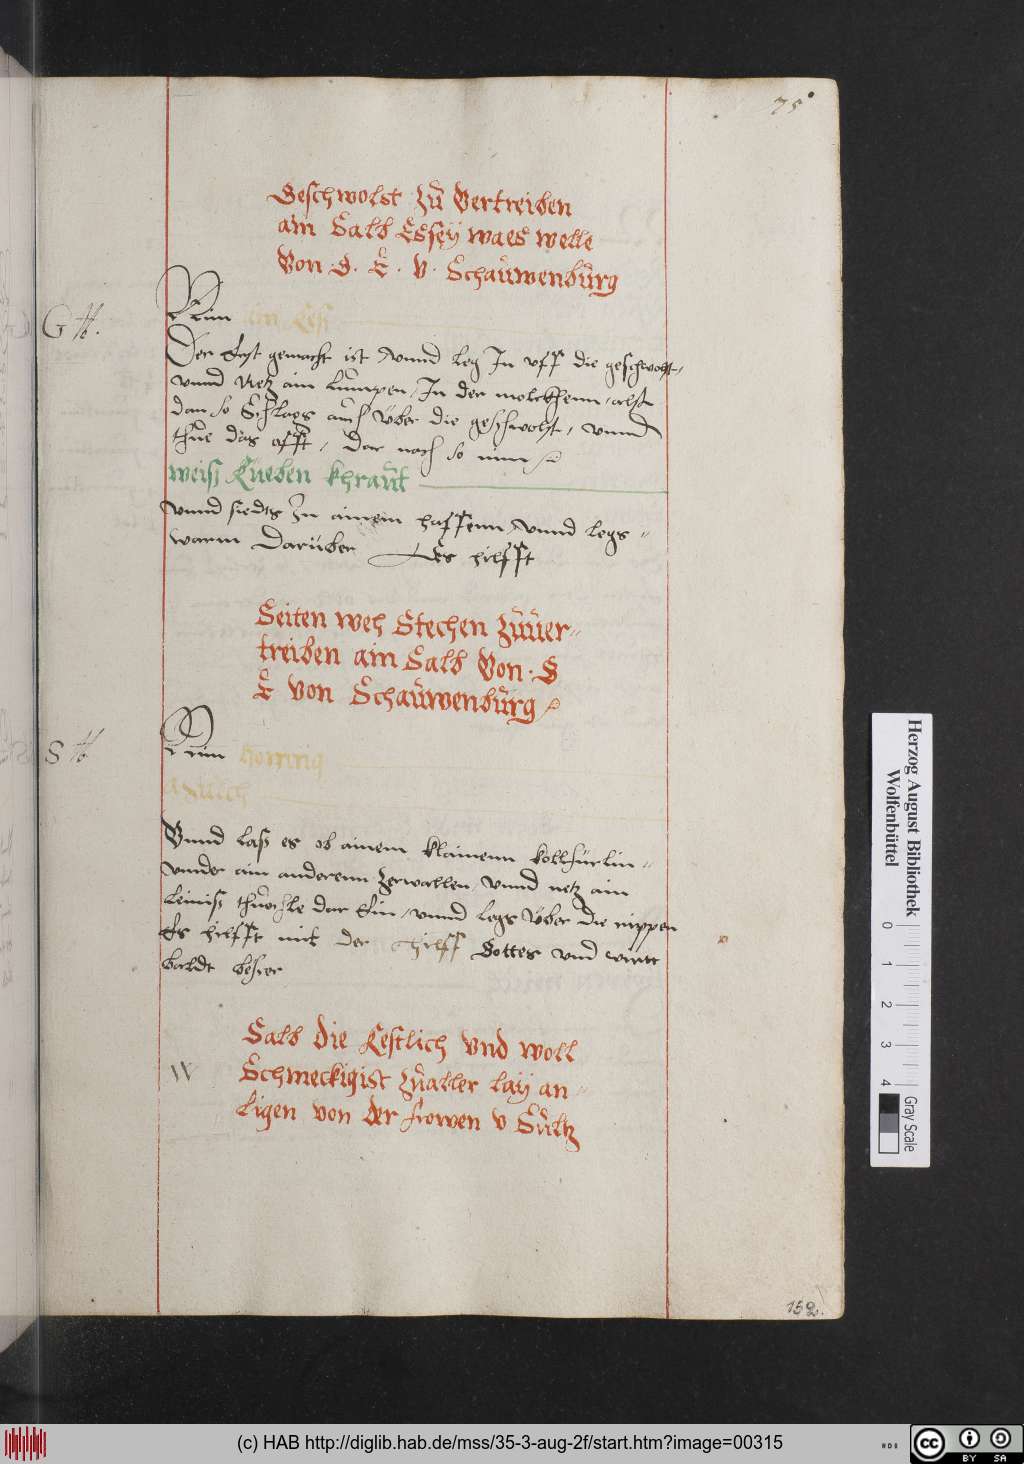 75
Geschwolst Zů Vertreiben
ain Salb Es seÿ waes welle
Von . G . E . V . Schaůwenbůrg
G H.
Nim ain Keß
Der Erst gemacht ist / vnnd leg In vff die geschwolst,
vnnd Netz ain lůmpen / In der molckhenn, alß
dan so Schlags aůch Über die geschwolst, vnnd
thůe das offt, Dar nach so nim
weiß Rüeben khraůt
vnnd siedts In ainem haffenn, vnnd legs =
warm Darüber Es hilfft
Seiten weh Stechen Zůuer=
treiben ain Salb Von . G
E von Schaůwenbůrg
S H
Nim Hönnig
Vnnd laß es ob ainem klainenn kollfürlin =
vnnder ain anderenn Zerwallen, vnnd netz ain
leiniß thüechle dar Ein, vnnd legs Über die rippen
Es hilfft mit der hilff Gottes vnd wirtt
baldt besser
W
Salb die Kestlich vnd woll
Schmeckig ist Zůaller laÿ an=
ligen von der frowen v Sůltz
152.
Herzog August Bibliothek
Wolfenbüttel
0 1 2 3 4
Gray Scale
(c) HAB http://diglib.hab.de/mss/35-3-aug-2f/start.htm?image=00315
cc BY SA